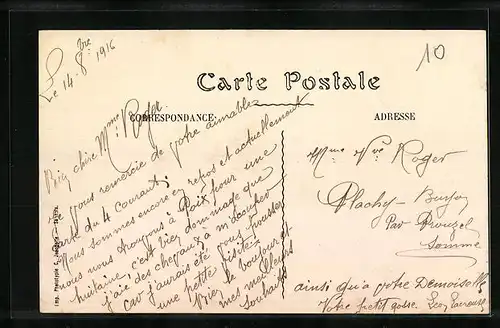 Le 14-8bre 1916
10
Carte Postale
CORRESPONDANCE
ADRESSE
Bien chère Mme Roger
Je vous remercie de votre aimable
carte du 4 Courant.
Nous sommes encore en repos et actuellement
nous nous trouvons à Poix pour une
huitaine, c'est bien dommage que
j'aie des chevaux à m'occuper
car j'aurais été vous pousser
une petite visite.
Bien le bonjour et
mes meilleurs
Souhaits
Mme Vve Roger
Plachy-Buyon
Par Prouzel
Somme
ainsi qu'à votre Demoiselle
Votre petit gosse. Léon
Imp.